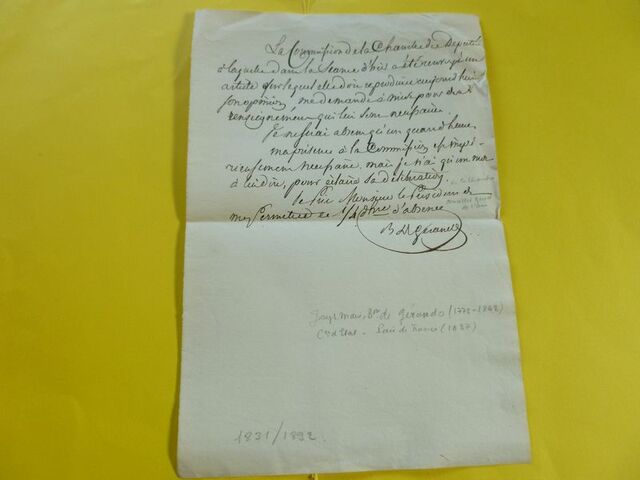 La Commission de la Chambre des Députés
à laquelle dans la Séance d'hier a été renvoyé un
article sur lequel elle doit reproduire aujourd'hui
son opinion, me demande à midi pour des
renseignemens qui lui sont nécessaires.
Je ne serai absent qu'un quart d'heure,
ma présence à la Commission est impé-
rieusement nécessaire, mais je n'ai qu'un mot
à lui dire, pour éclairer sa délibération
Je prie Monsieur le Président de
me permettre ce 1/4 d'heure d'absence
B DeGérando
Joseph Marie, Bon de Gérando (1772-1842)
Cer d'Etat - Pair de France (1837)
1831/1892